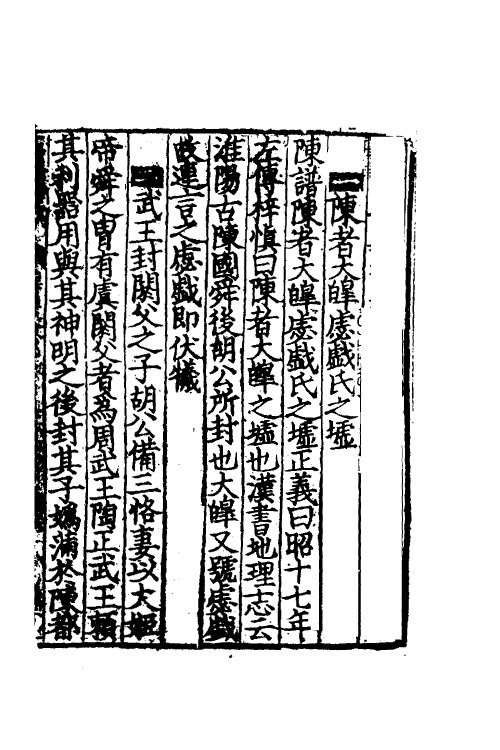 一陳者大皥虙戲氏之墟
陳譜陳者大皥虙戲氏之墟正義曰昭十七年
左傳梓慎曰陳者大皥之墟也漢書地理志云
淮陽古陳國舜後胡公所封也大皥又號虙戲
故連言之虙戲即伏犧
二武王封閼父之子胡公備三恪妻以大姬
帝舜之胄有虞閼父者為周武王陶正武王賴
其利器用與其神明之後封其子媯滿於陳都